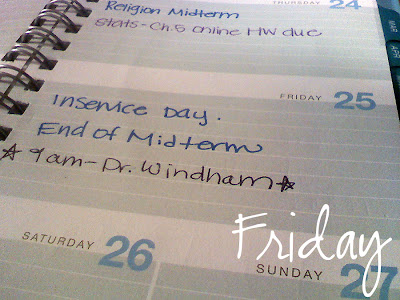 THURSDAY 24
Religion Midterm
Stats-Ch.5 online HW due
MAR
APR
FRIDAY 25
Inservice Day.
End of Midterm
☆ 9am-Dr. Windham ☆
Friday
SATURDAY 26
SUNDAY 27